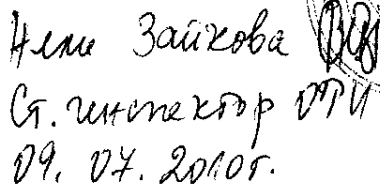 Нели Зайкова
Ст. инспектор ОТИ
09. 07. 2010г.